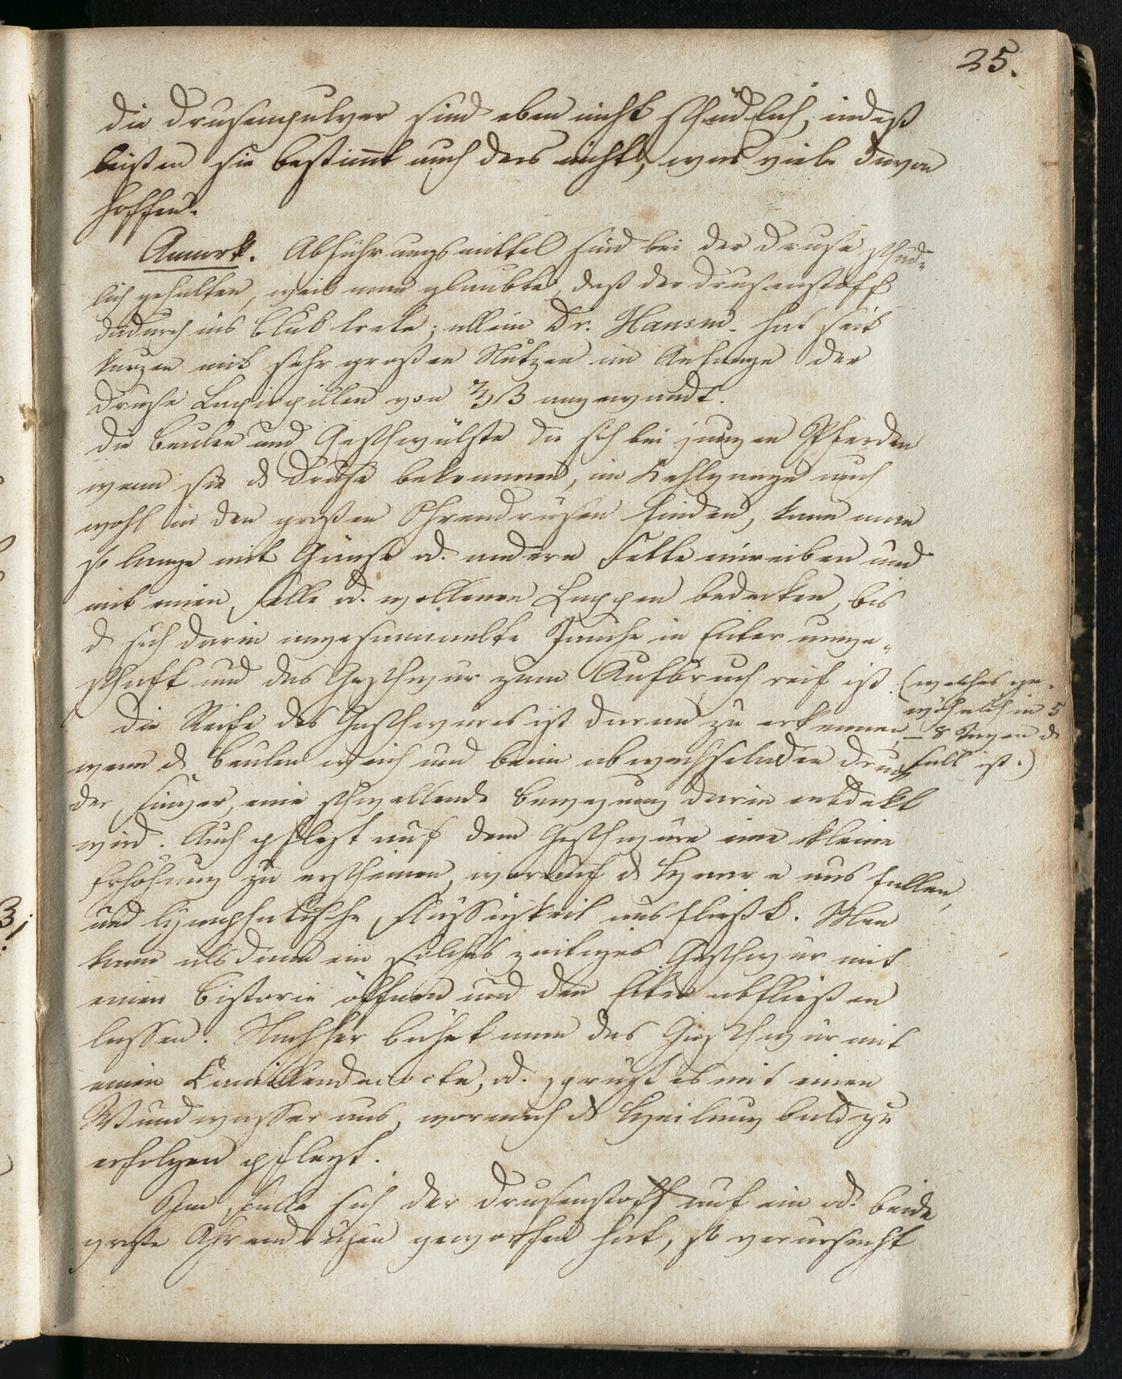 25.
die Drusenpulver sind eben nicht schädlich, indeß
leisten sie bestimt auch das nicht, was viele davon
hoffen.
Anmerk. Abführungsmittel sind bei der Druse schäd-
lich gehalten, weil man glaubte, daß der Drusenstoff
dadurch ins Blut trete; allein Dr. Hausm. hat seit
kurzen mit sehr großen Nutzen im Anfange der
Druse Laxirpillen von ℥ß angewandt.
die Beulen und Geschwülste die sich bei jungen Pferden
wenn sie d Druse bekommen, im Kehlgange auch
wohl in den großen Ohrendrüsen finden, kann man
so lange mit Gänse od. andern Fette einreiben und
mit einen Felle od. wollenen Lappen bedecken, bis
d sich darin angesammelte Jauche in Eiter umge-
schaft und das Geschwür zum Aufbruch reif ist. (welches ge-
wöhnlich in 5
– 8 Tagen d
Fall ist.)
die Reife des Geschwüres ist daran zu erkennen,
wenn d Beulen weich und beim abwechselnden Druck
der Finger, eine schwallende Bewegung darin entdekt
wird. Auch pflegt auf dem Geschwüre eine kleine
Erhöhung zu erscheinen, worauf d Haare aus fallen,
und lymphatische Flüssigkeit ausfließt. Man
kann alsdann ein solches zeitiges Geschwür mit
einen Bistorie öffnen und den Eiter abfließen
lassen. Nachher bähet man das Geschwür mit
einen Kamillendecockte, od. sprüzt es mit einen
Wundwasser aus, wornach d Heilung bald zu
erfolgen pflegt.
Im Falle sich der Drusenstoff auf ein od. beide
große Ohrendrüsen geworfen hat, so verursacht